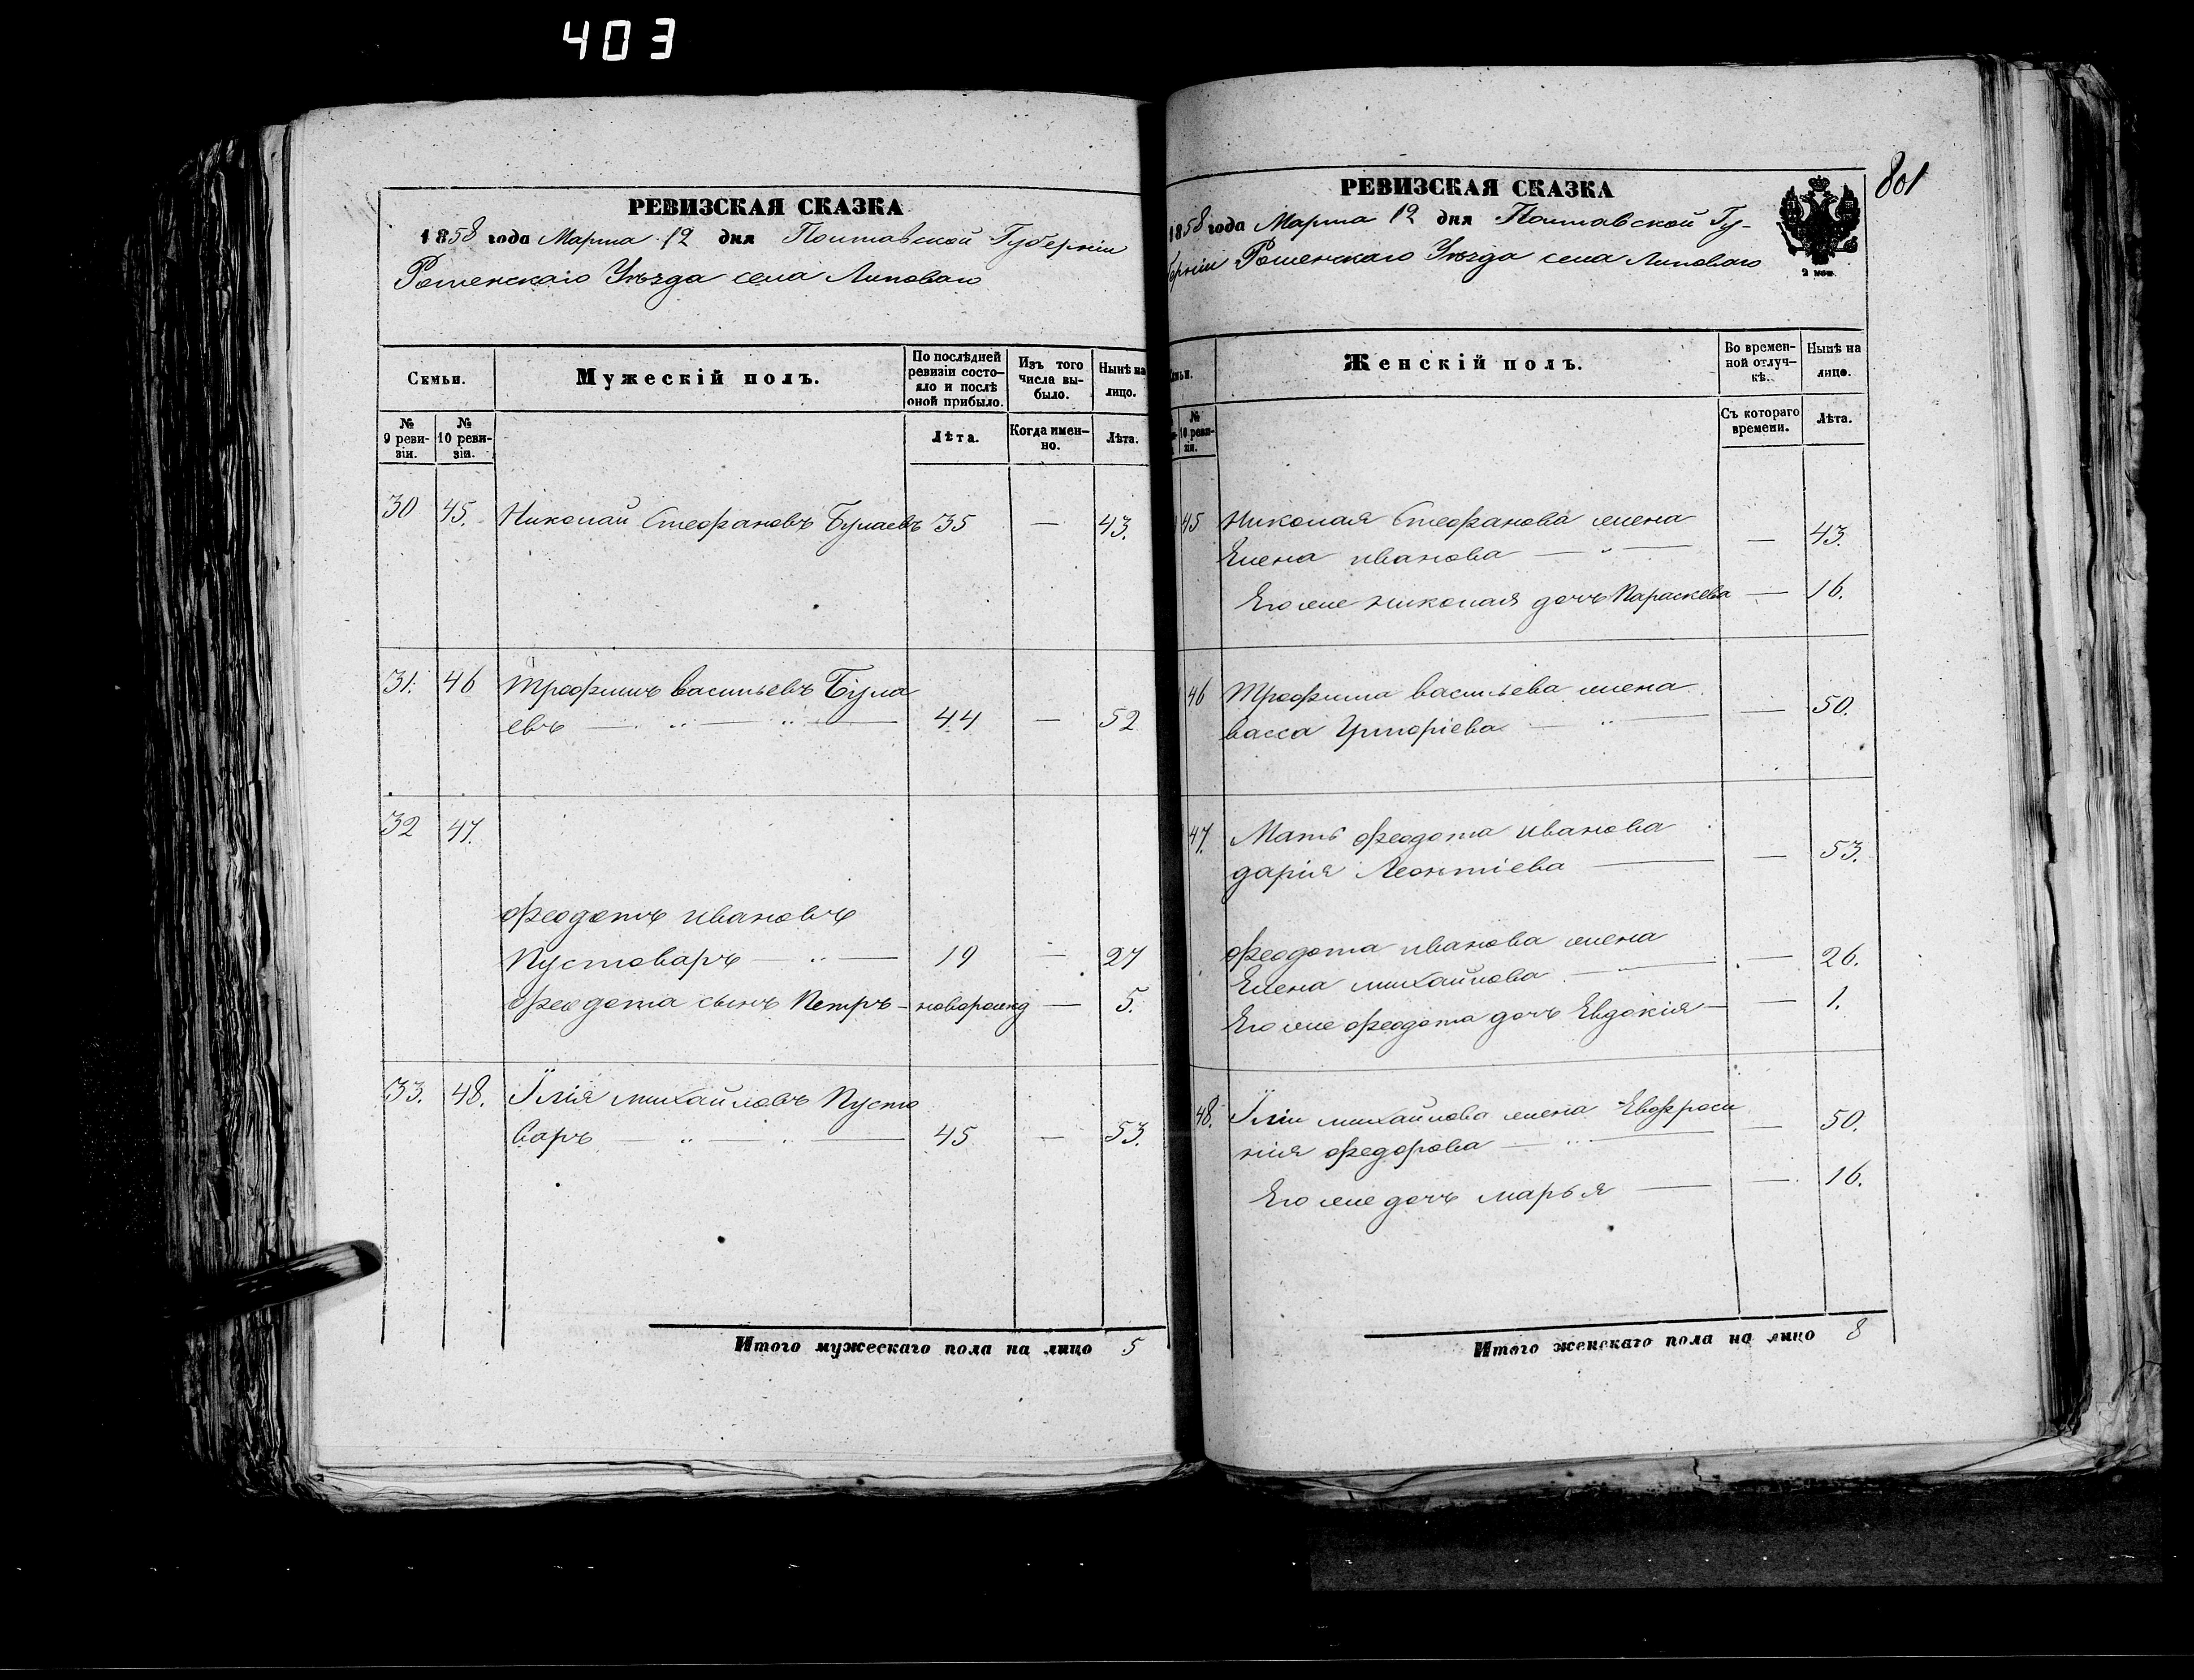 403
РЕВИЗСКАЯ СКАЗКА
1858 года Марта 12 дня Полтавской Губерніи
Роменскаго Уѣзда села Липоваго
Семьи.
Мужескій полъ.
По послѣдней ревизіи состояло и послѣ оной прибыло.
Изъ того числа выбыло.
Нынѣ на лицо.
№ 9 ревизіи.
№ 10 ревизіи.
Лѣта.
Когда именно.
Лѣта.
30 45. Николай Стефановъ Булаевъ 35 — 43.
31. 46 Трофимъ Васильевъ Була
евъ — „ — „ — 44 — 52
32 47.
Феодотъ Ивановъ
Пустоваръ — „ — 19 — 27
Феодота сынъ Петръ — новорожд — 5.
33. 48. Илія Михайловъ Пусто
варъ — „ — „ — 45 — 53.
Итого мужескаго пола на лицо 5
801
РЕВИЗСКАЯ СКАЗКА
1858 года Марта 12 дня Полтавской Гу-
берніи Роменскаго Уѣзда села Липоваго
2 коп.
Женскій полъ.
Во временной отлучкѣ.
Нынѣ на лицо.
№ 10 ревизіи.
Съ котораго времени.
Лѣта.
45 Николая Стефанова жена
Елена Иванова — „ — — 43.
Его же Николая дочь Параскева — 16.
46 Трофима Васильева жена
Васса Григоріева — „ — — 50.
47. Мать Феодота Иванова
Дарія Леонтіева — — 53.
Феодота Иванова жена
Елена Михайлова — „ — — 26.
Его же Феодота дочь Евдокія — — 1.
48. Иліи Михайлова жена Евфроси
нія Федорова — „ — — 50.
Его же дочь Марья — — 16.
Итого женскаго пола на лицо 8